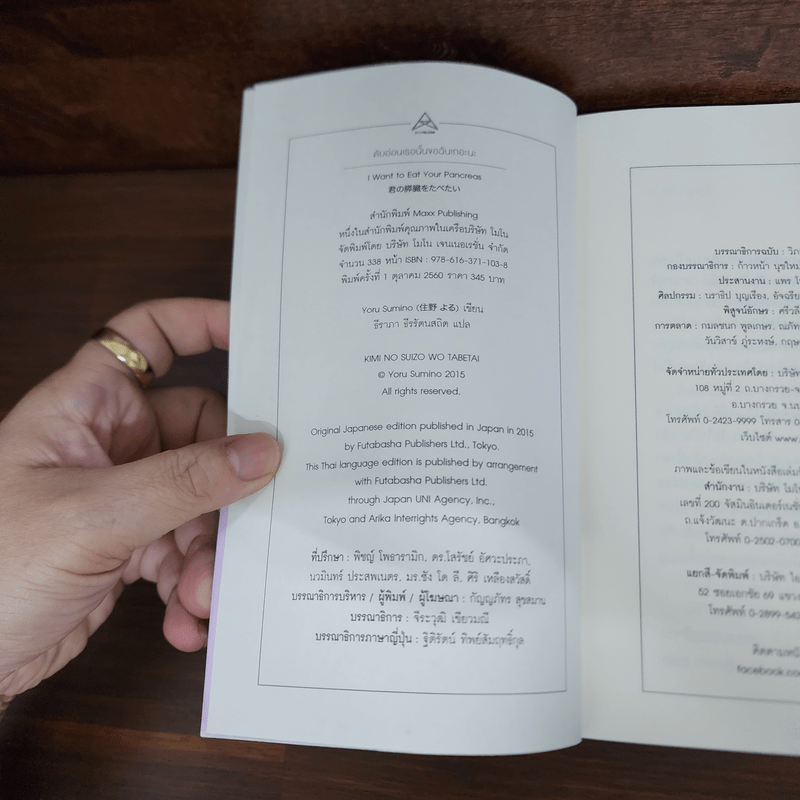 ตับอ่อนเธอนั้นขอฉันเถอะนะ
I Want to Eat Your Pancreas
君の膵臓をたべたい
สำนักพิมพ์ Maxx Publishing
หนึ่งในสำนักพิมพ์คุณภาพในเครือบริษัท โมโน
จัดพิมพ์โดย บริษัท โมโน เจนเนอเรชั่น จำกัด
จำนวน 338 หน้า ISBN : 978-616-371-103-8
พิมพ์ครั้งที่ 1 ตุลาคม 2560 ราคา 345 บาท
Yoru Sumino (住野 よる) เขียน
ธีราภา ธีรรัตนสถิต แปล
KIMI NO SUIZO WO TABETAI
© Yoru Sumino 2015
All rights reserved.
Original Japanese edition published in Japan in 2015
by Futabasha Publishers Ltd., Tokyo.
This Thai language edition is published by arrangement
with Futabasha Publishers Ltd.
through Japan UNI Agency, Inc.,
Tokyo and Arika Interrights Agency, Bangkok
ที่ปรึกษา : พิชญ์ โพธารามิก, ดร.โสรัชย์ อัศวะประภา,
นวมินทร์ ประสพเนตร, มร.ซัง โด ลี, ศิริ เหลืองสวัสดิ์
บรรณาธิการบริหาร / ผู้พิมพ์ / ผู้โฆษณา : กัญญภัทร สุขสมาน
บรรณาธิการ : จิระวุฒิ เขียวมณี
บรรณาธิการภาษาญี่ปุ่น : ฐิติรัตน์ ทิพย์สัมฤทธิ์กุล
บรรณาธิการฉบับ :
กองบรรณาธิการ : ก้าวหน้า
ประสานงาน : แพร
ศิลปกรรม : นราธิป บุญเรือง,
พิสูจน์อักษร :
การตลาด : กมลชนก พูลเกษร,
วันวิสาข์ ภู่ระหงษ์,
จัดจำหน่ายทั่วประเทศโดย :
108 หมู่ที่ 2 ถ.บางกรวย
อ.บางกรวย
โทรศัพท์ 0-2423-9999 โทรสาร
เว็บไซต์
ภาพและข้อเขียนในหนังสือเล่ม
สำนักงาน : บริษัท
เลขที่ 200 จัสมินอินเตอร์
ถ.แจ้งวัฒนะ ต.ปากเกร็ด
โทรศัพท์ 0-2502-0700
แยกสี-จัดพิมพ์ : บริษัท
52 ซอยเอกชัย 69
โทรศัพท์ 0-2899-
ติดตาม